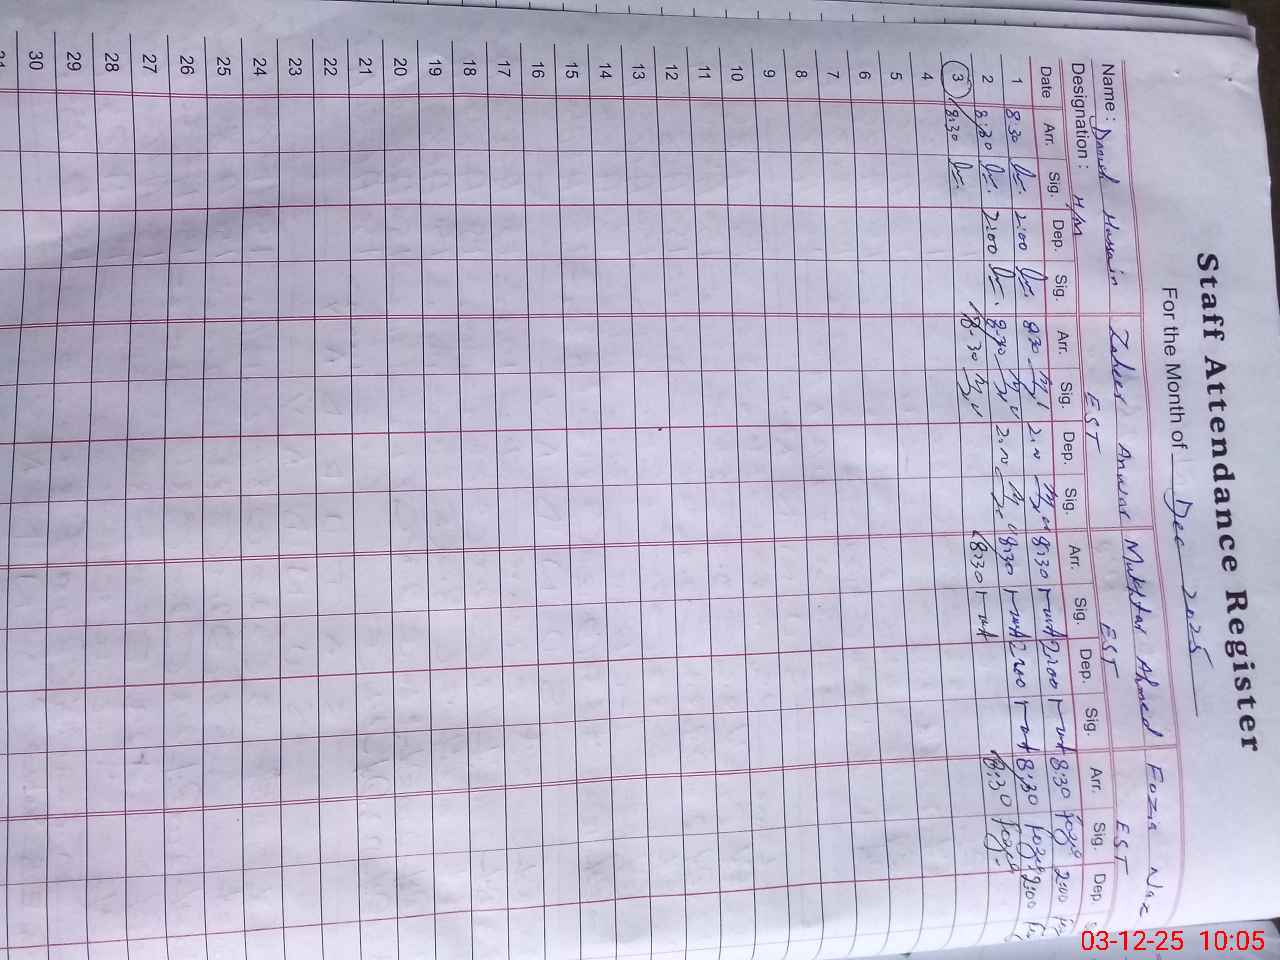 Staff Attendance Register
For the Month of Dec 2025
Name : Daud Hussain Zaheer Anwar Mukhtar Ahmed Fozia Naz
Designation : H/M EST EST EST
Date Arr. Sig. Dep. Sig. Arr. Sig. Dep. Sig. Arr. Sig. Dep. Sig. Arr. Sig. Dep.
1 8:30 2:00 8:30 8:30 2:00 8:30 2:00
2 8:30 2:00 8:30 8:30 2:00 8:30 2:00
3 8:30 8:30 8:30 8:30
4
5
6
7
8
9
10
11
12
13
14
15
16
17
18
19
20
21
22
23
24
25
26
27
28
29
30
31
03-12-25 10:05